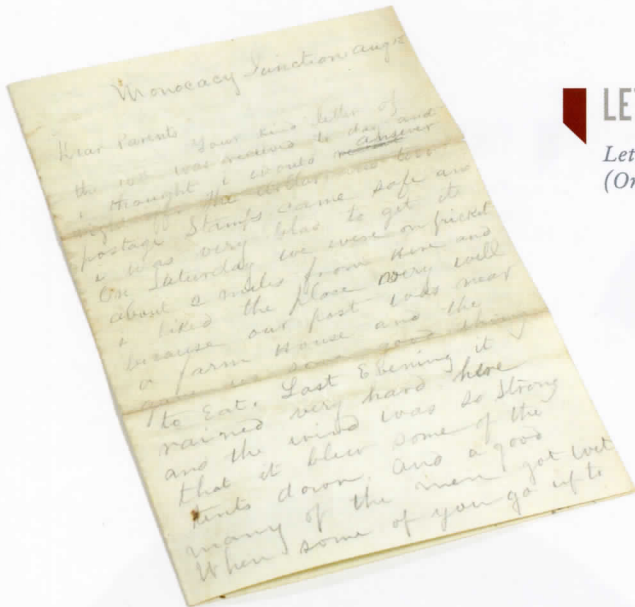 Monocacy Junction Aug 12
Dear Parents Your kind letter of
the 10th was received to day and
i thought i would answer
the dollar and
postage Stamps came safe and
i was very glas to get it
On Saturday we were on pricket
about 2 miles from Here and
i liked the place very well
because our post was near
a farm House and the
gave us some good things
to Eat. Last Evening it
rained very hard here
and the wind was so Strong
that it blew some of the
tents down and a good
many of the men got wet
When some of you go up to
LE
Let
(Or